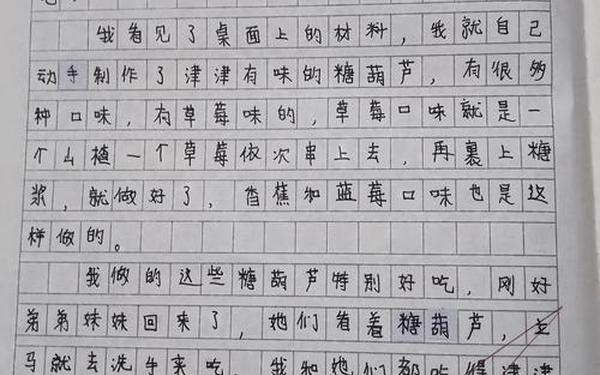 我看见了桌面上的材料，我就自己
动手制作了津津有味的糖葫芦，有很多
种口味，有草莓味的，草莓口味就是一
个山楂一个草莓依次串上去，再裹上糖
浆，就做好了，香蕉和蓝莓口味也是这
样做的。
我做的这些糖葫芦特别好吃，刚好
弟弟妹妹回来了，她们看着糖葫芦，立
马就去洗手来吃，我和她们都吃得津津